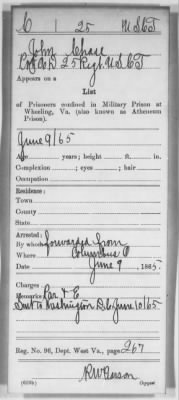 C 1 25 U.S.C.T.
John Chase
Co. D, 25 Regt. U.S.C.T.
Appears on a
List
of Prisoners confined in Military Prison at
Wheeling, Va. (also known as Atheneum
Prison).
June 9/65
Age years; height ft. in.
Complexion ; eyes ; hair
Occupation
Residence:
Town
County
State
Arrested:
By whom forwarded from
Where Columbus O
Date June 9, 1865.
Charges
Remarks Par & E
Sent to Washington D.C. June 10/65
Reg. No. 96, Dept. West Va., page 267
Copyist.